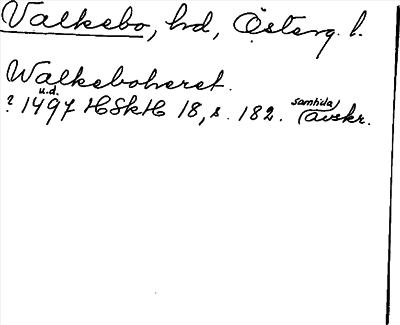 Valkebo, hrd, Österg. l.
Walkeboheret.
u.d. samtida
? 1497 HSkH 18, s. 182. (avskr.